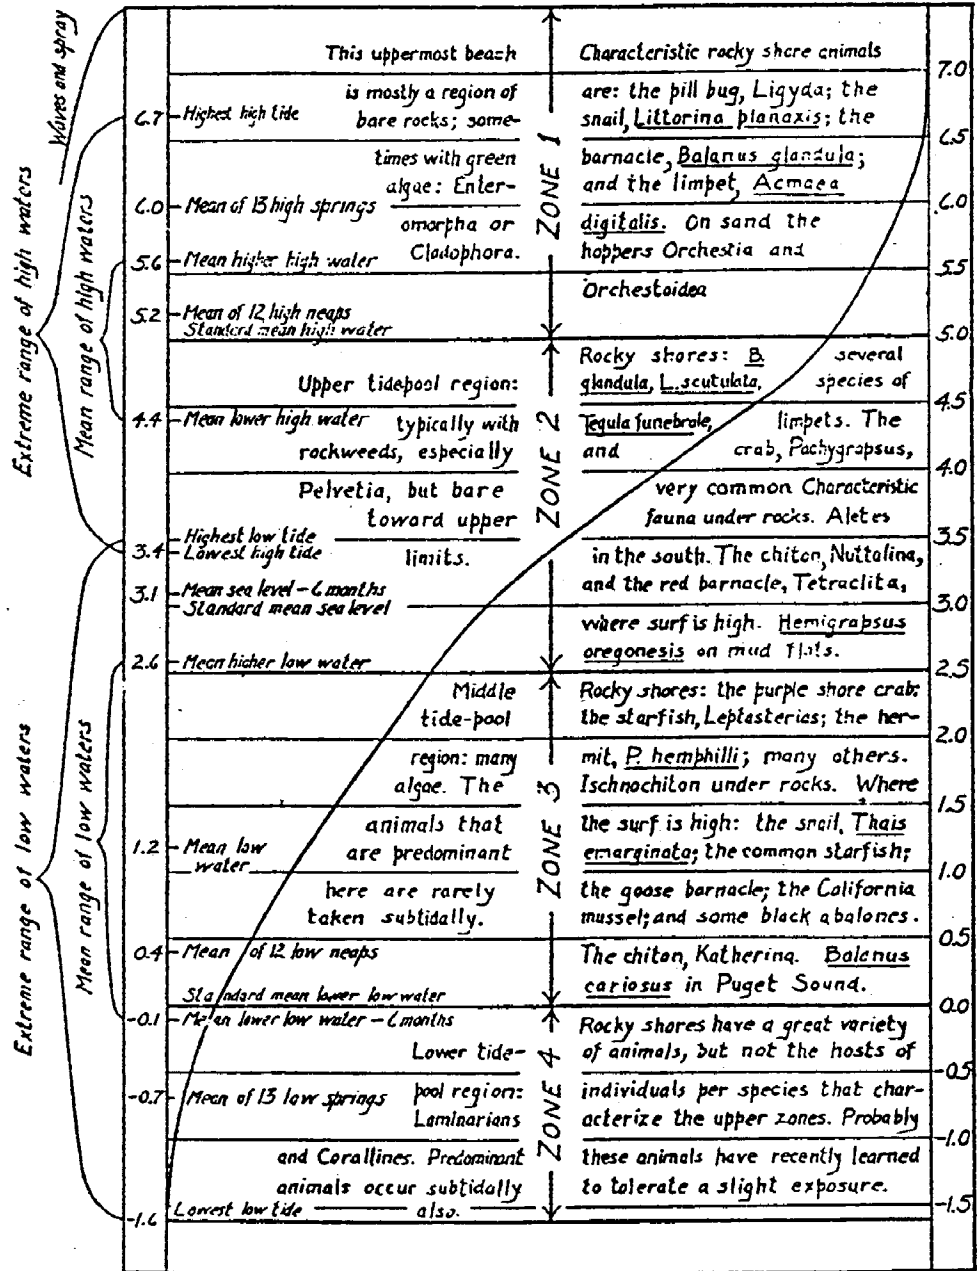 Waves and spray
Extreme range of high waters
Mean range of high waters
Extreme range of low waters
Mean range of low waters
6.7
Highest high tide
6.0
Mean of 13 high springs
5.6
Mean higher high water
5.2
Mean of 12 high neaps
Standard mean high water
4.4
Mean lower high water
Highest low tide
3.4
Lowest high tide
3.1
Mean sea level – 6 months
Standard mean sea level
2.6
Mean higher low water
1.2
Mean low
water
0.4
Mean of 12 low neaps
Standard mean lower low water
-0.1
Mean lower low water – 6 months
-0.7
Mean of 13 low springs
Lowest low tide
-1.6
This uppermost beach
is mostly a region of
bare rocks; some-
times with green
algae: Enter-
omorpha or
Cladophora.
Upper tidepool region:
typically with
rockweeds, especially
Pelvetia, but bare
toward upper
limits.
Middle
tide-pool
region: many
algae. The
animals that
are predominant
here are rarely
taken subtidally.
Lower tide-
pool region:
Laminarians
and Corallines. Predominant
animals occur subtidally
also.
ZONE 1
ZONE 2
ZONE 3
ZONE 4
Characteristic rocky shore animals
are: the pill bug, Ligyda; the
snail, Littorina planaxis; the
barnacle, Balanus glandula;
and the limpet, Acmaea
digitalis. On sand the
hoppers Orchestia and
Orchestoidea
Rocky shores: B. several
glandula, L. scutulata, species of
Tegula funebrale, limpets. The
and crab, Pachygrapsus,
very common Characteristic
fauna under rocks. Aletes
in the south. The chiton, Nuttalina,
and the red barnacle, Tetraclita,
where surf is high. Hemigrapsus
oregonesis on mud flats.
Rocky shores: the purple shore crab;
the starfish, Leptasterias; the her-
mit, P. hemphilli; many others.
Ischnochiton under rocks. Where
the surf is high: the snail, Thais
emarginata; the common starfish;
the goose barnacle; the California
mussel; and some black abalones.
The chiton, Katherina. Balanus
cariosus in Puget Sound.
Rocky shores have a great variety
of animals, but not the hosts of
individuals per species that char-
acterize the upper zones. Probably
these animals have recently learned
to tolerate a slight exposure.
7.0
6.5
6.0
5.5
5.0
4.5
4.0
3.5
3.0
2.5
2.0
1.5
1.0
0.5
0.0
-0.5
-1.0
-1.5